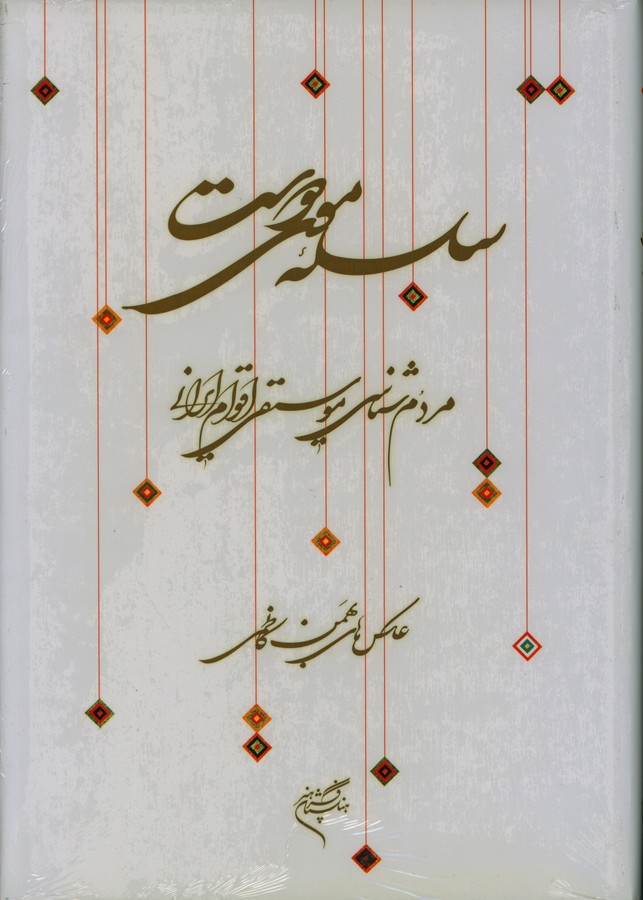 سلسلهٔ موی دوست
مردم‌شناسی موسیقی اقوام ایرانی
عکس‌های بهمن کاظمی
فرهنگستان هنر